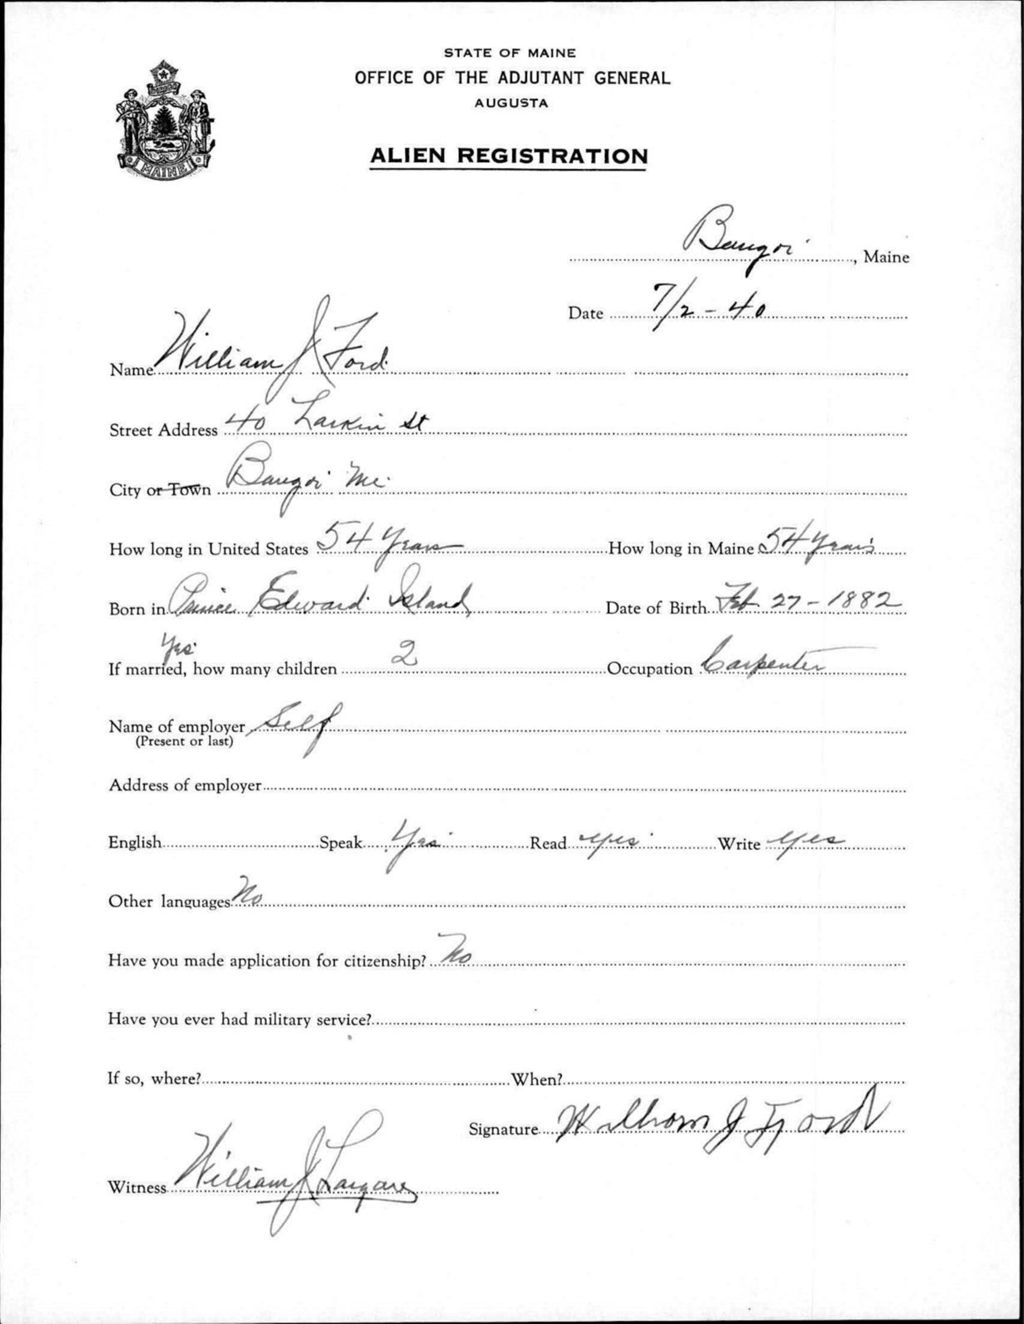 STATE OF MAINE
OFFICE OF THE ADJUTANT GENERAL
AUGUSTA
ALIEN REGISTRATION
MAINE
Bangor, Maine
Date 7/2-40
Name William J Ford
Street Address 40 Larkin St
City or Town Bangor Me.
How long in United States 54 Years How long in Maine 54 Years
Born in Prince Edward Island Date of Birth Feb 27-1882
Yes
If married, how many children 2 Occupation Carpenter
Name of employer Self
(Present or last)
Address of employer
English Speak Yes Read yes Write yes
Other languages No
Have you made application for citizenship? No
Have you ever had military service?
If so, where? When?
Signature William J Ford
Witness William J